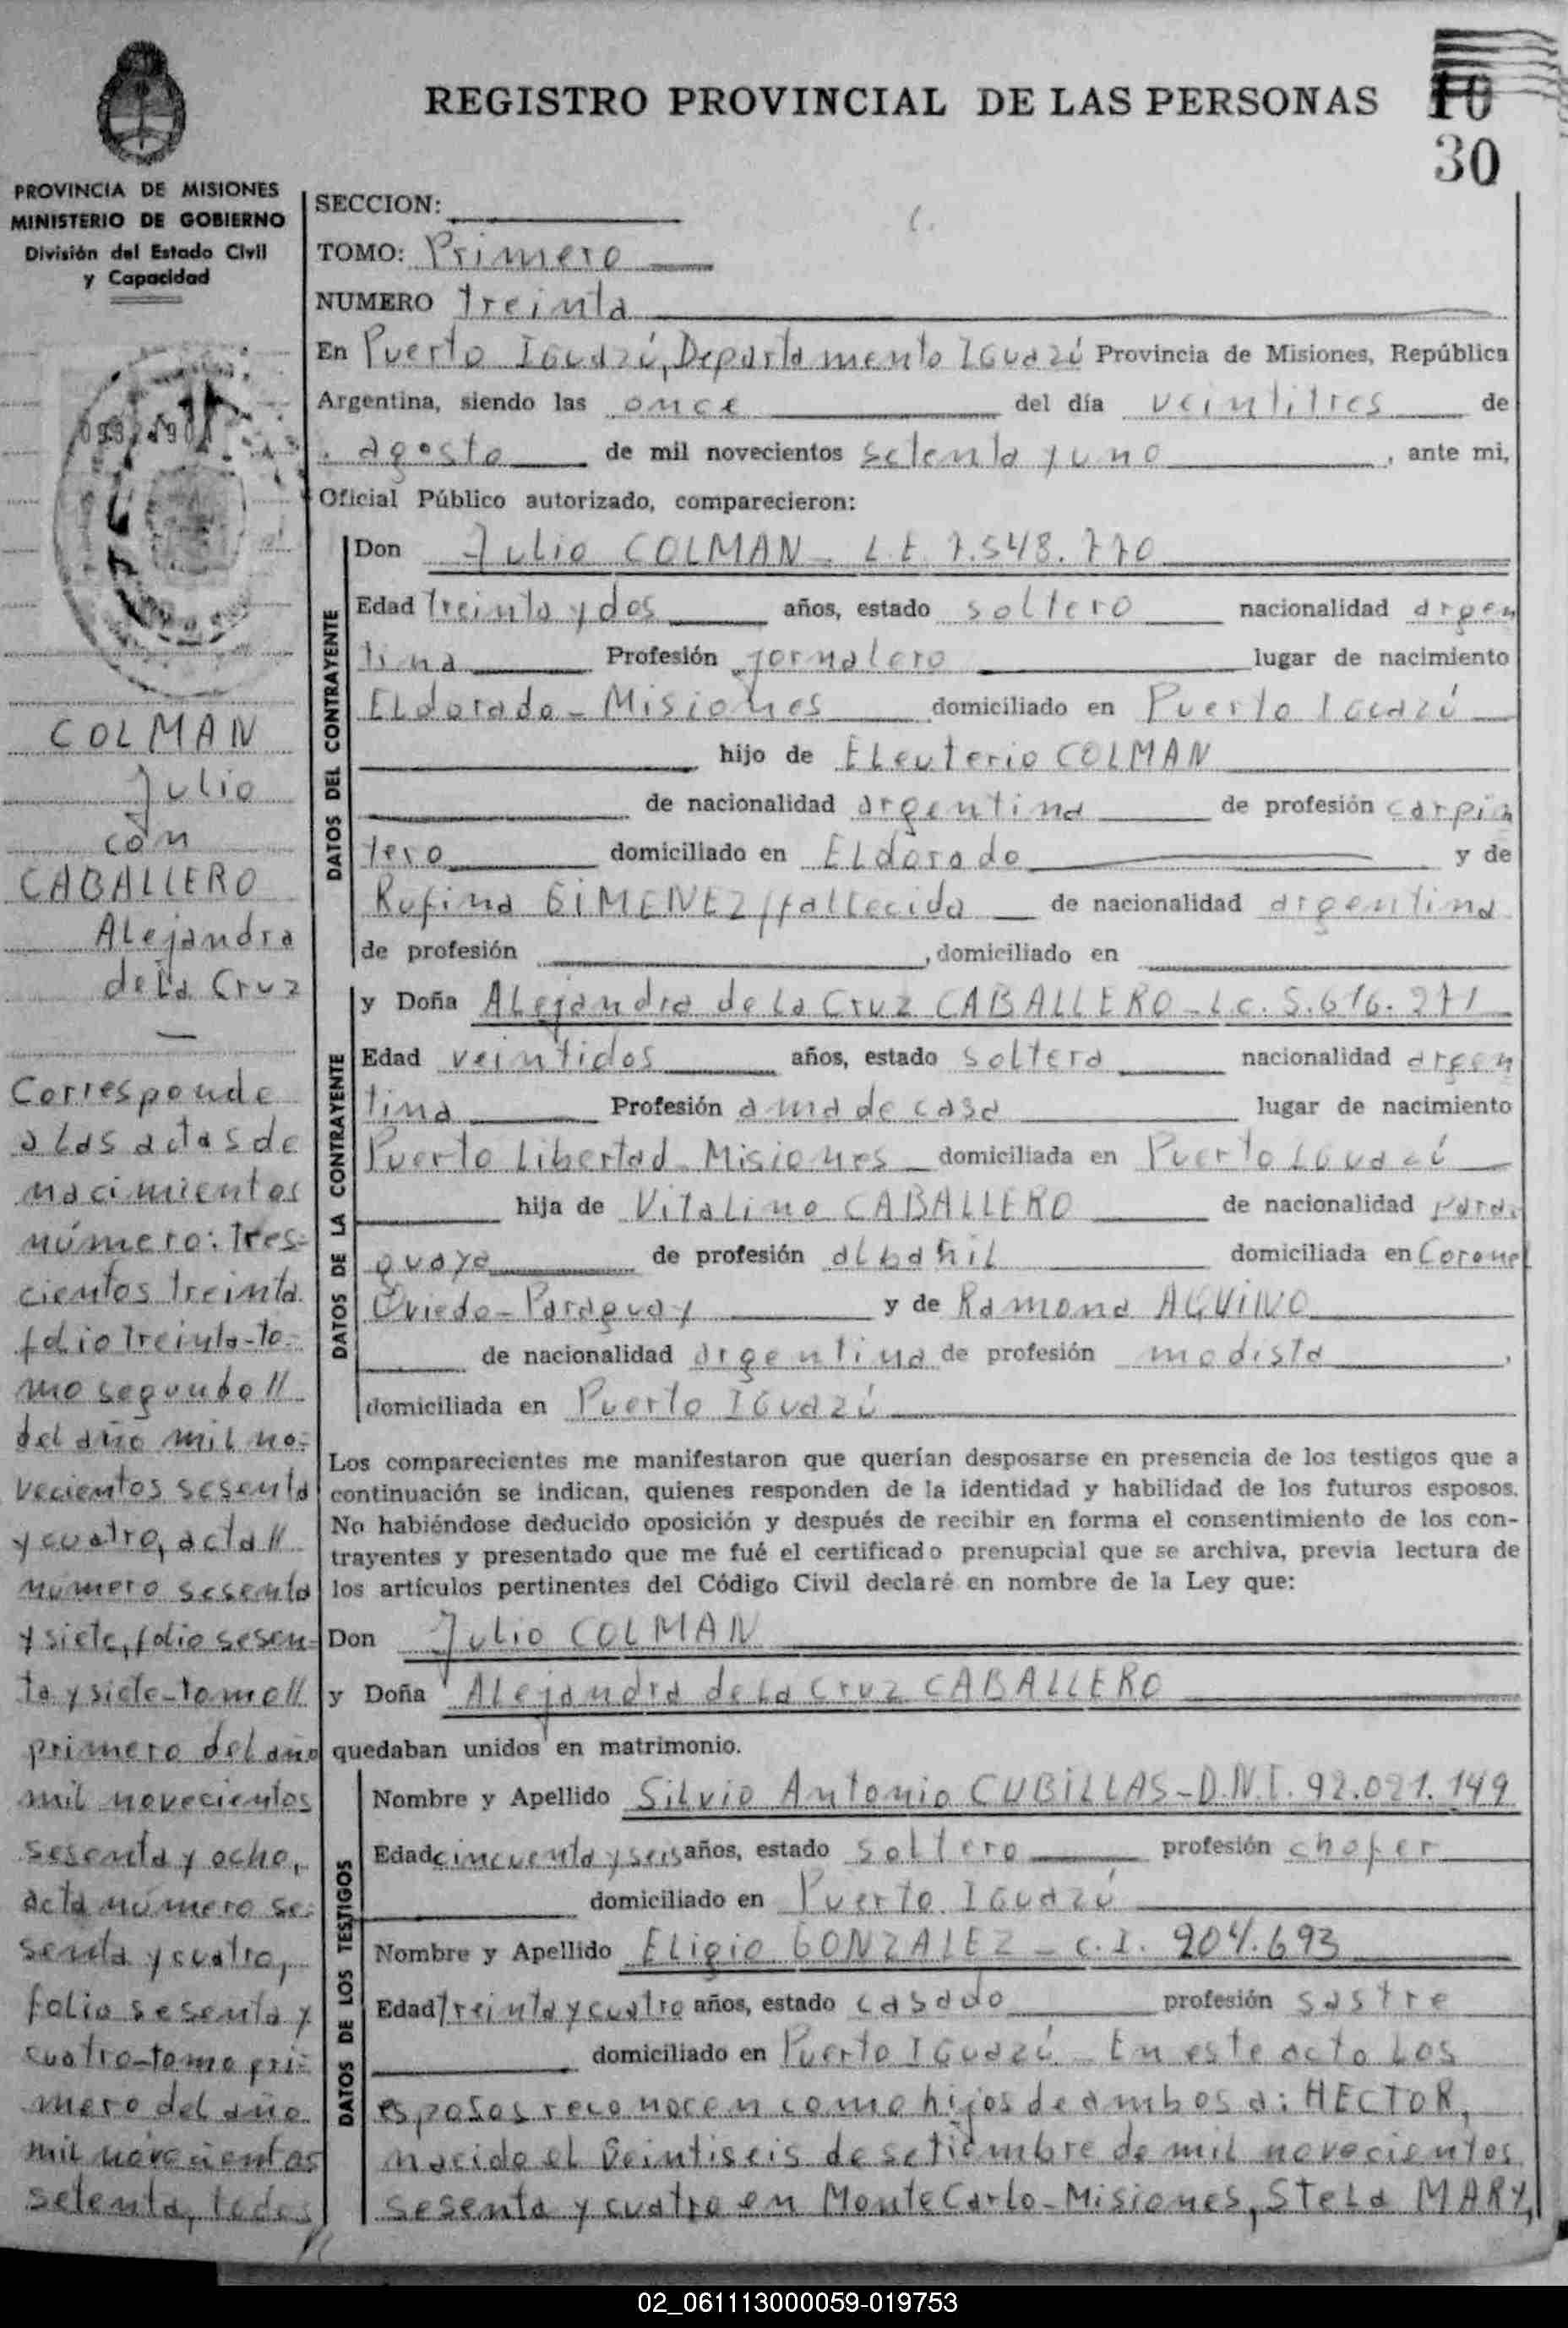 REGISTRO PROVINCIAL DE LAS PERSONAS
10
30
PROVINCIA DE MISIONES
MINISTERIO DE GOBIERNO
División del Estado Civil
y Capacidad
COLMAN
Julio
con
CABALLERO
Alejandra
de La Cruz
Corresponde
a Las actas de
nacimientos
número: tres-
cientos treinta
folio treinta-to-
mo segundo//
del año mil no-
vecientos sesenta
y cuatro, acta//
número sesenta
y siete, folio sesen-
ta y siete-tomo//
primero del año
mil novecientos
sesenta y ocho,
acta número se-
senta y cuatro,
folio sesenta y
cuatro-tomo pri-
mero del año
mil novecientos
setenta, todos
SECCION:
TOMO: Primero
NUMERO treinta
En Puerto IGuazú, Departamento IGuazú Provincia de Misiones, República
Argentina, siendo las once del día veintitres de
agosto de mil novecientos setenta y uno, ante mi,
Oficial Público autorizado, comparecieron:
DATOS DEL CONTRAYENTE
Don Julio COLMAN - L.E. 7.548.770
Edad treinta y dos años, estado soltero nacionalidad argen
tina Profesión jornalero lugar de nacimiento
ELdorado - Misiones domiciliado en Puerto IGuazú
hijo de ELeuterio COLMAN
de nacionalidad argentina de profesión carpin
tero domiciliado en ELdorado y de
Rufina GIMENEZ//fallecida de nacionalidad argentina
de profesión , domiciliado en
DATOS DE LA CONTRAYENTE
y Doña ALejandra de La Cruz CABALLERO - L.C. 5.616.271
Edad veintidos años, estado soltera nacionalidad argen
tina Profesión ama de casa lugar de nacimiento
Puerto Libertad - Misiones domiciliada en Puerto IGuazú
hija de Vitalino CABALLERO de nacionalidad para-
guaya de profesión aLbañiL domiciliada en Coronel
Oviedo - Paraguay y de Ramona AQUINO
de nacionalidad argentina de profesión modista ,
domiciliada en Puerto IGuazú
Los comparecientes me manifestaron que querían desposarse en presencia de los testigos que a
continuación se indican, quienes responden de la identidad y habilidad de los futuros esposos.
No habiéndose deducido oposición y después de recibir en forma el consentimiento de los con-
trayentes y presentado que me fué el certificado prenupcial que se archiva, previa lectura de
los artículos pertinentes del Código Civil declaré en nombre de la Ley que:
Don Julio COLMAN
y Doña ALejandra de La Cruz CABALLERO
quedaban unidos en matrimonio.
DATOS DE LOS TESTIGOS
Nombre y Apellido Silvio Antonio CUBILLAS - D.N.I. 92.021.149
Edad cincuenta y seis años, estado soltero profesión chofer
domiciliado en Puerto IGuazú
Nombre y Apellido ELigio GONZALEZ - C.I. 204.693
Edad treinta y cuatro años, estado casado profesión sastre
domiciliado en Puerto IGuazú - En este acto Los
esposos reconocen como hijos de ambos a: HECTOR,
nacido el veintiseis de setiembre de mil novecientos
sesenta y cuatro en Monte Carlo - Misiones, STeLa MARY,
02_061113000059-019753